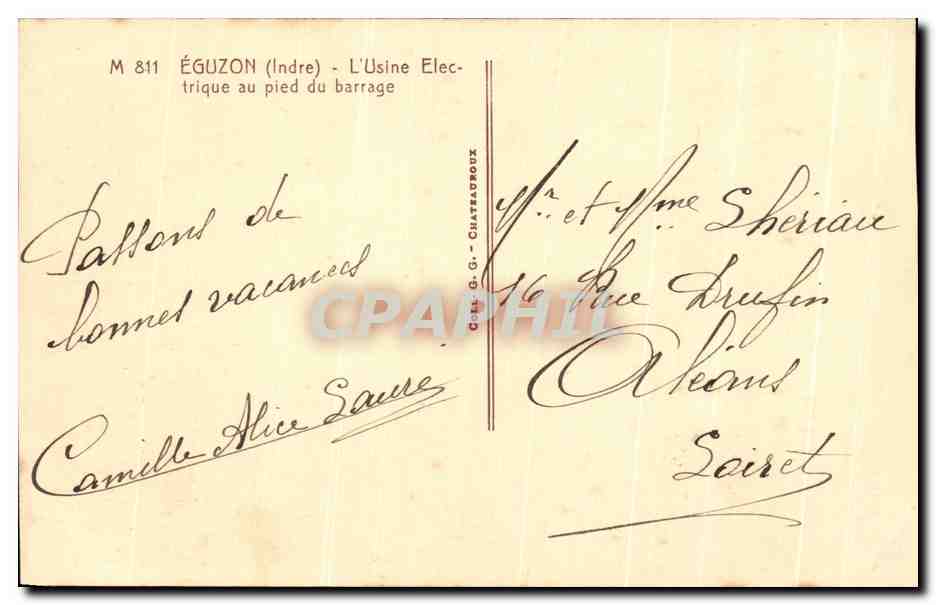 M 811 ÉGUZON (Indre) - L'Usine Elec-
trique au pied du barrage
Passons de
bonnes vacances
Camille Alice Laure
COLL. G. G. - CHATEAUROUX
CPAPHIL
Mr et Mme Shériau
16 Rue Drufin
Orléans
Loiret